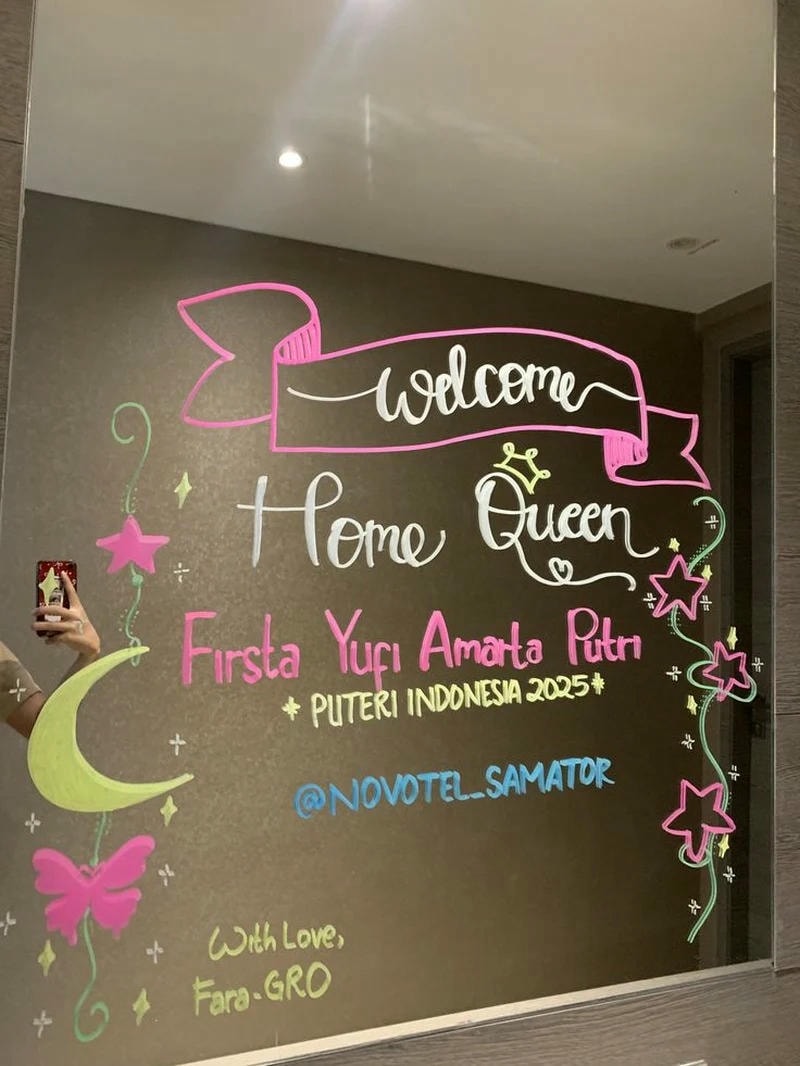 Welcome
Home Queen
Firsta Yufi Amarta Putri
* PUTERI INDONESIA 2025*
@NOVOTEL_SAMATOR
With Love,
Fara-GRO